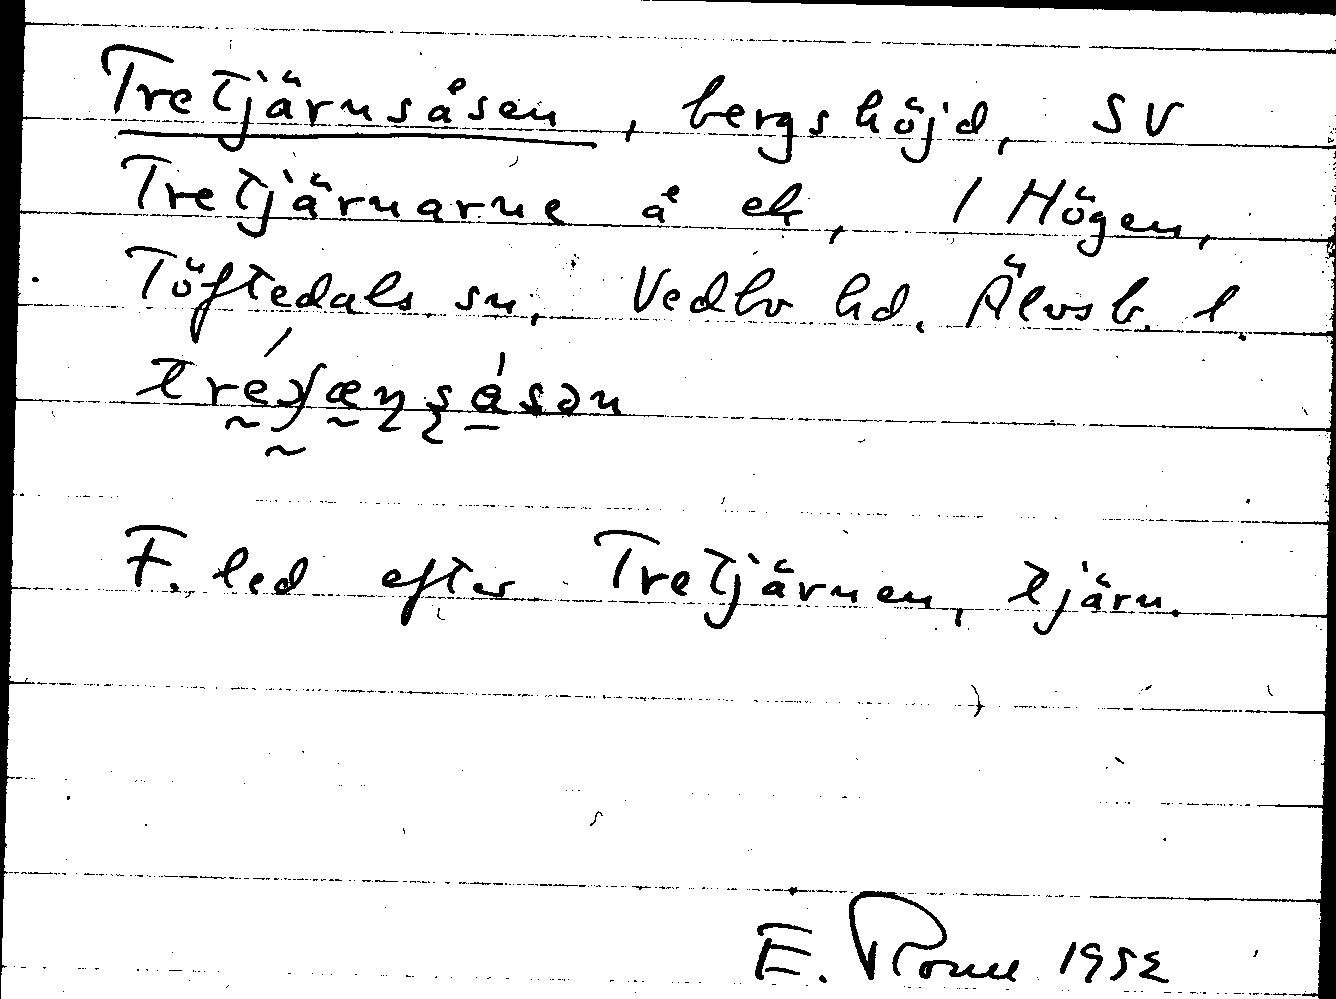 Tretjärnsåsen, bergshöjd, SV
Tretjärnarne å ek, 1 Högen,
Töftedals sn, Vedbo hd. Älvsb. l.
F. led efter Tretjärnen, tjärn.
E. 1952